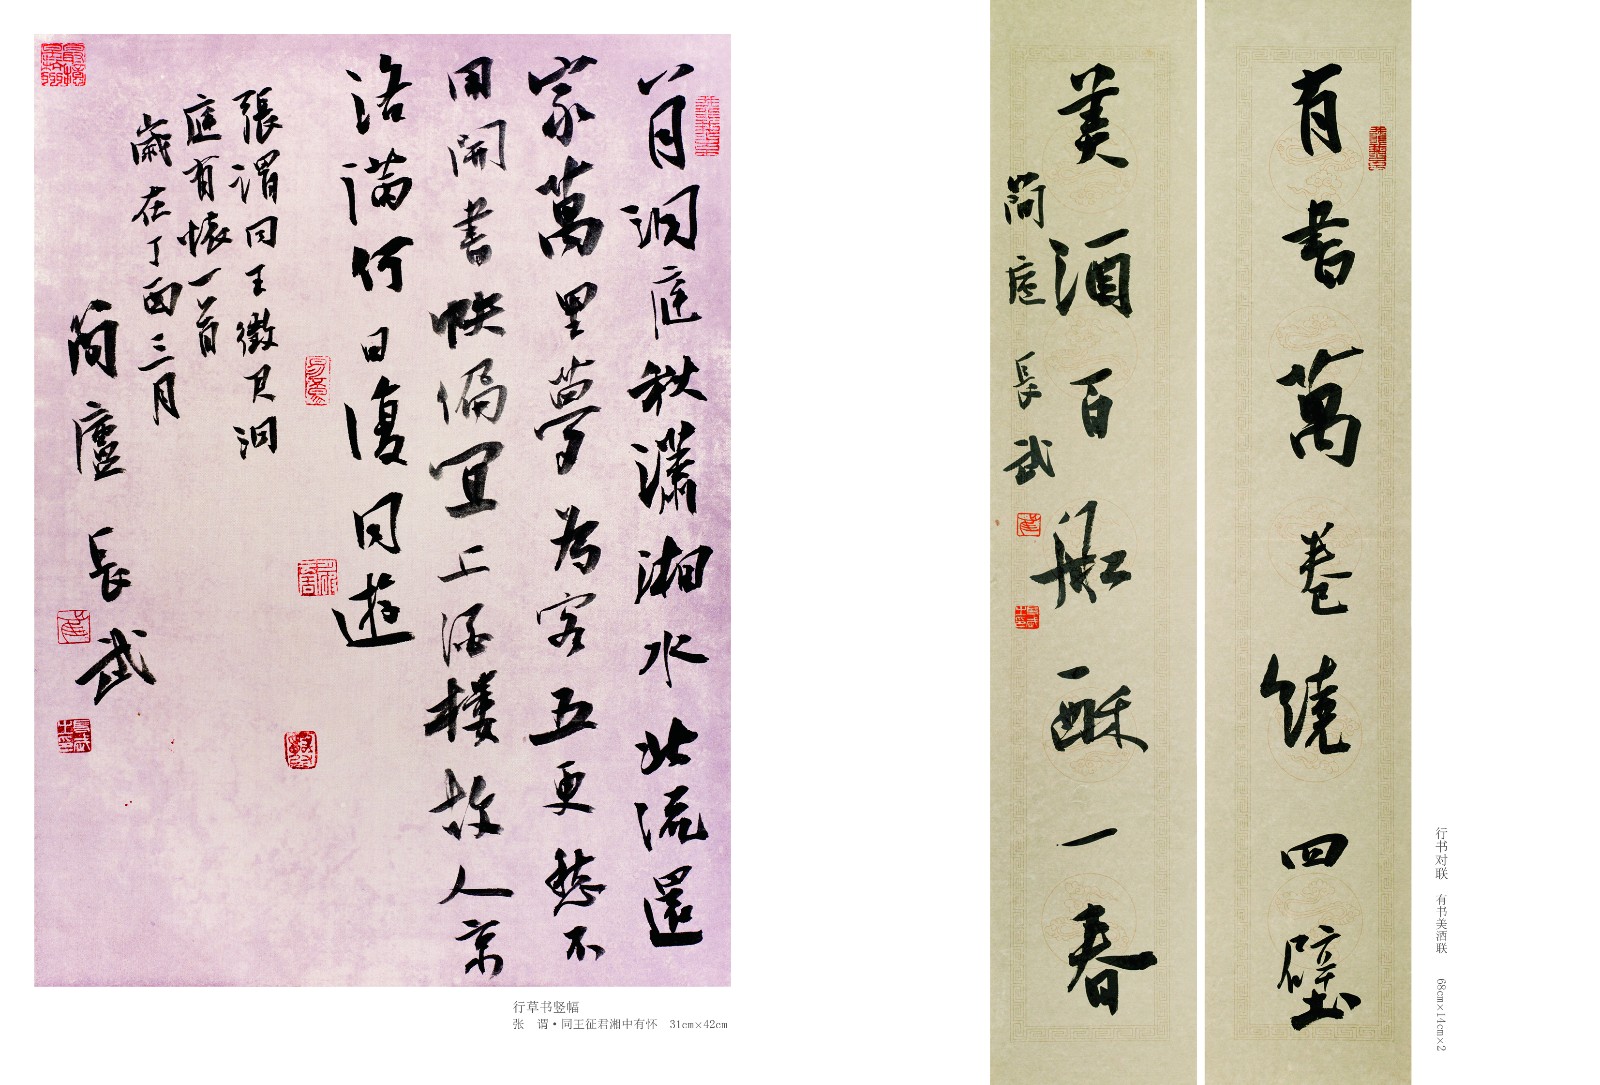 八月洞庭秋瀟湘水北流還
家萬里夢為客五更愁不
用開書帙偏宜上酒樓故人京
洛滿何日復同遊
張渭同王徵君洞
庭有懷一首
歲在丁酉三月
簡廬長武
行草书竖幅
张 谓·同王征君湘中有怀 31cm×42cm
有書萬卷饒四壁
美酒百酥一春
簡廬長武
行书对联 有书美酒联 68cm×14cm×2